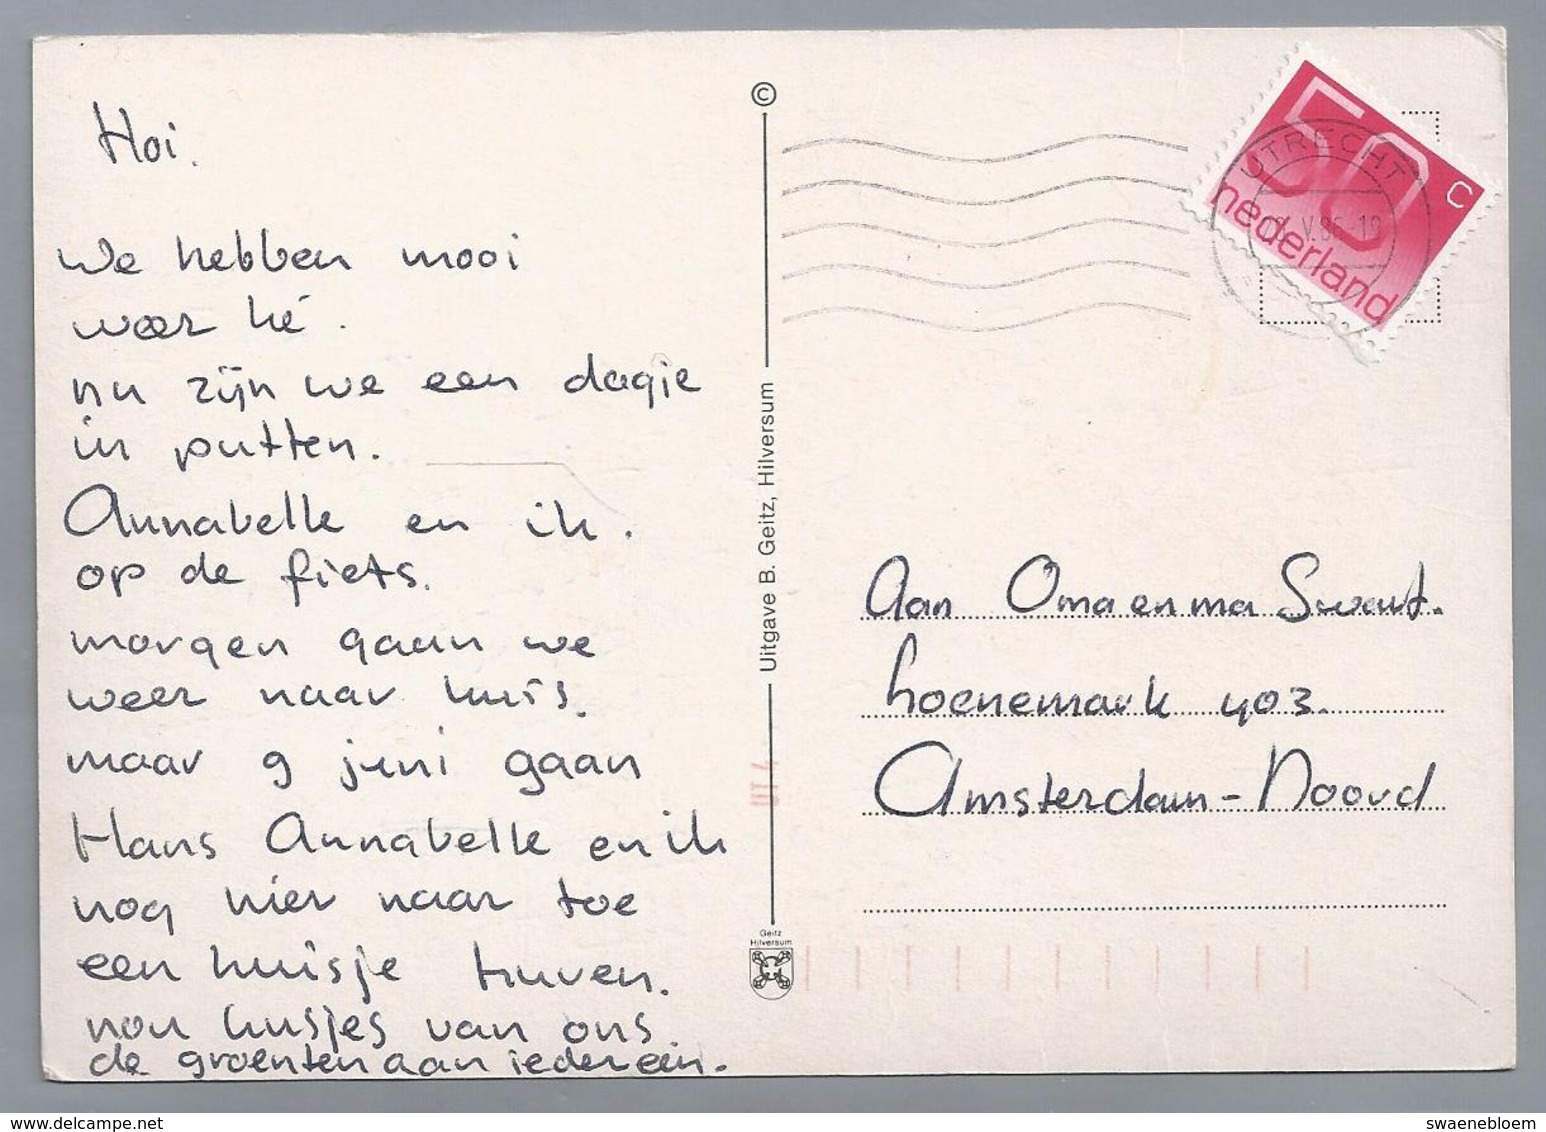 Hoi.
We hebben mooi
weer hé.
nu zijn we een dagje
in putten.
Annabelle en ik.
op de fiets.
morgen gaan we
weer naar huis.
maar 9 juni gaan
Hans Annabelle en ik
nog hier naar toe
een huisje huven.
nou kusjes van ons
de groenten aan iedereen.
©
Uitgave B. Geitz, Hilversum
Geitz
Hilversum
50 c
nederland
UTRECHT
V.86 19
Aan Oma en ma Swart.
Loenemark 403.
Amsterdam-Noord
delcampe.net
swaenebloem